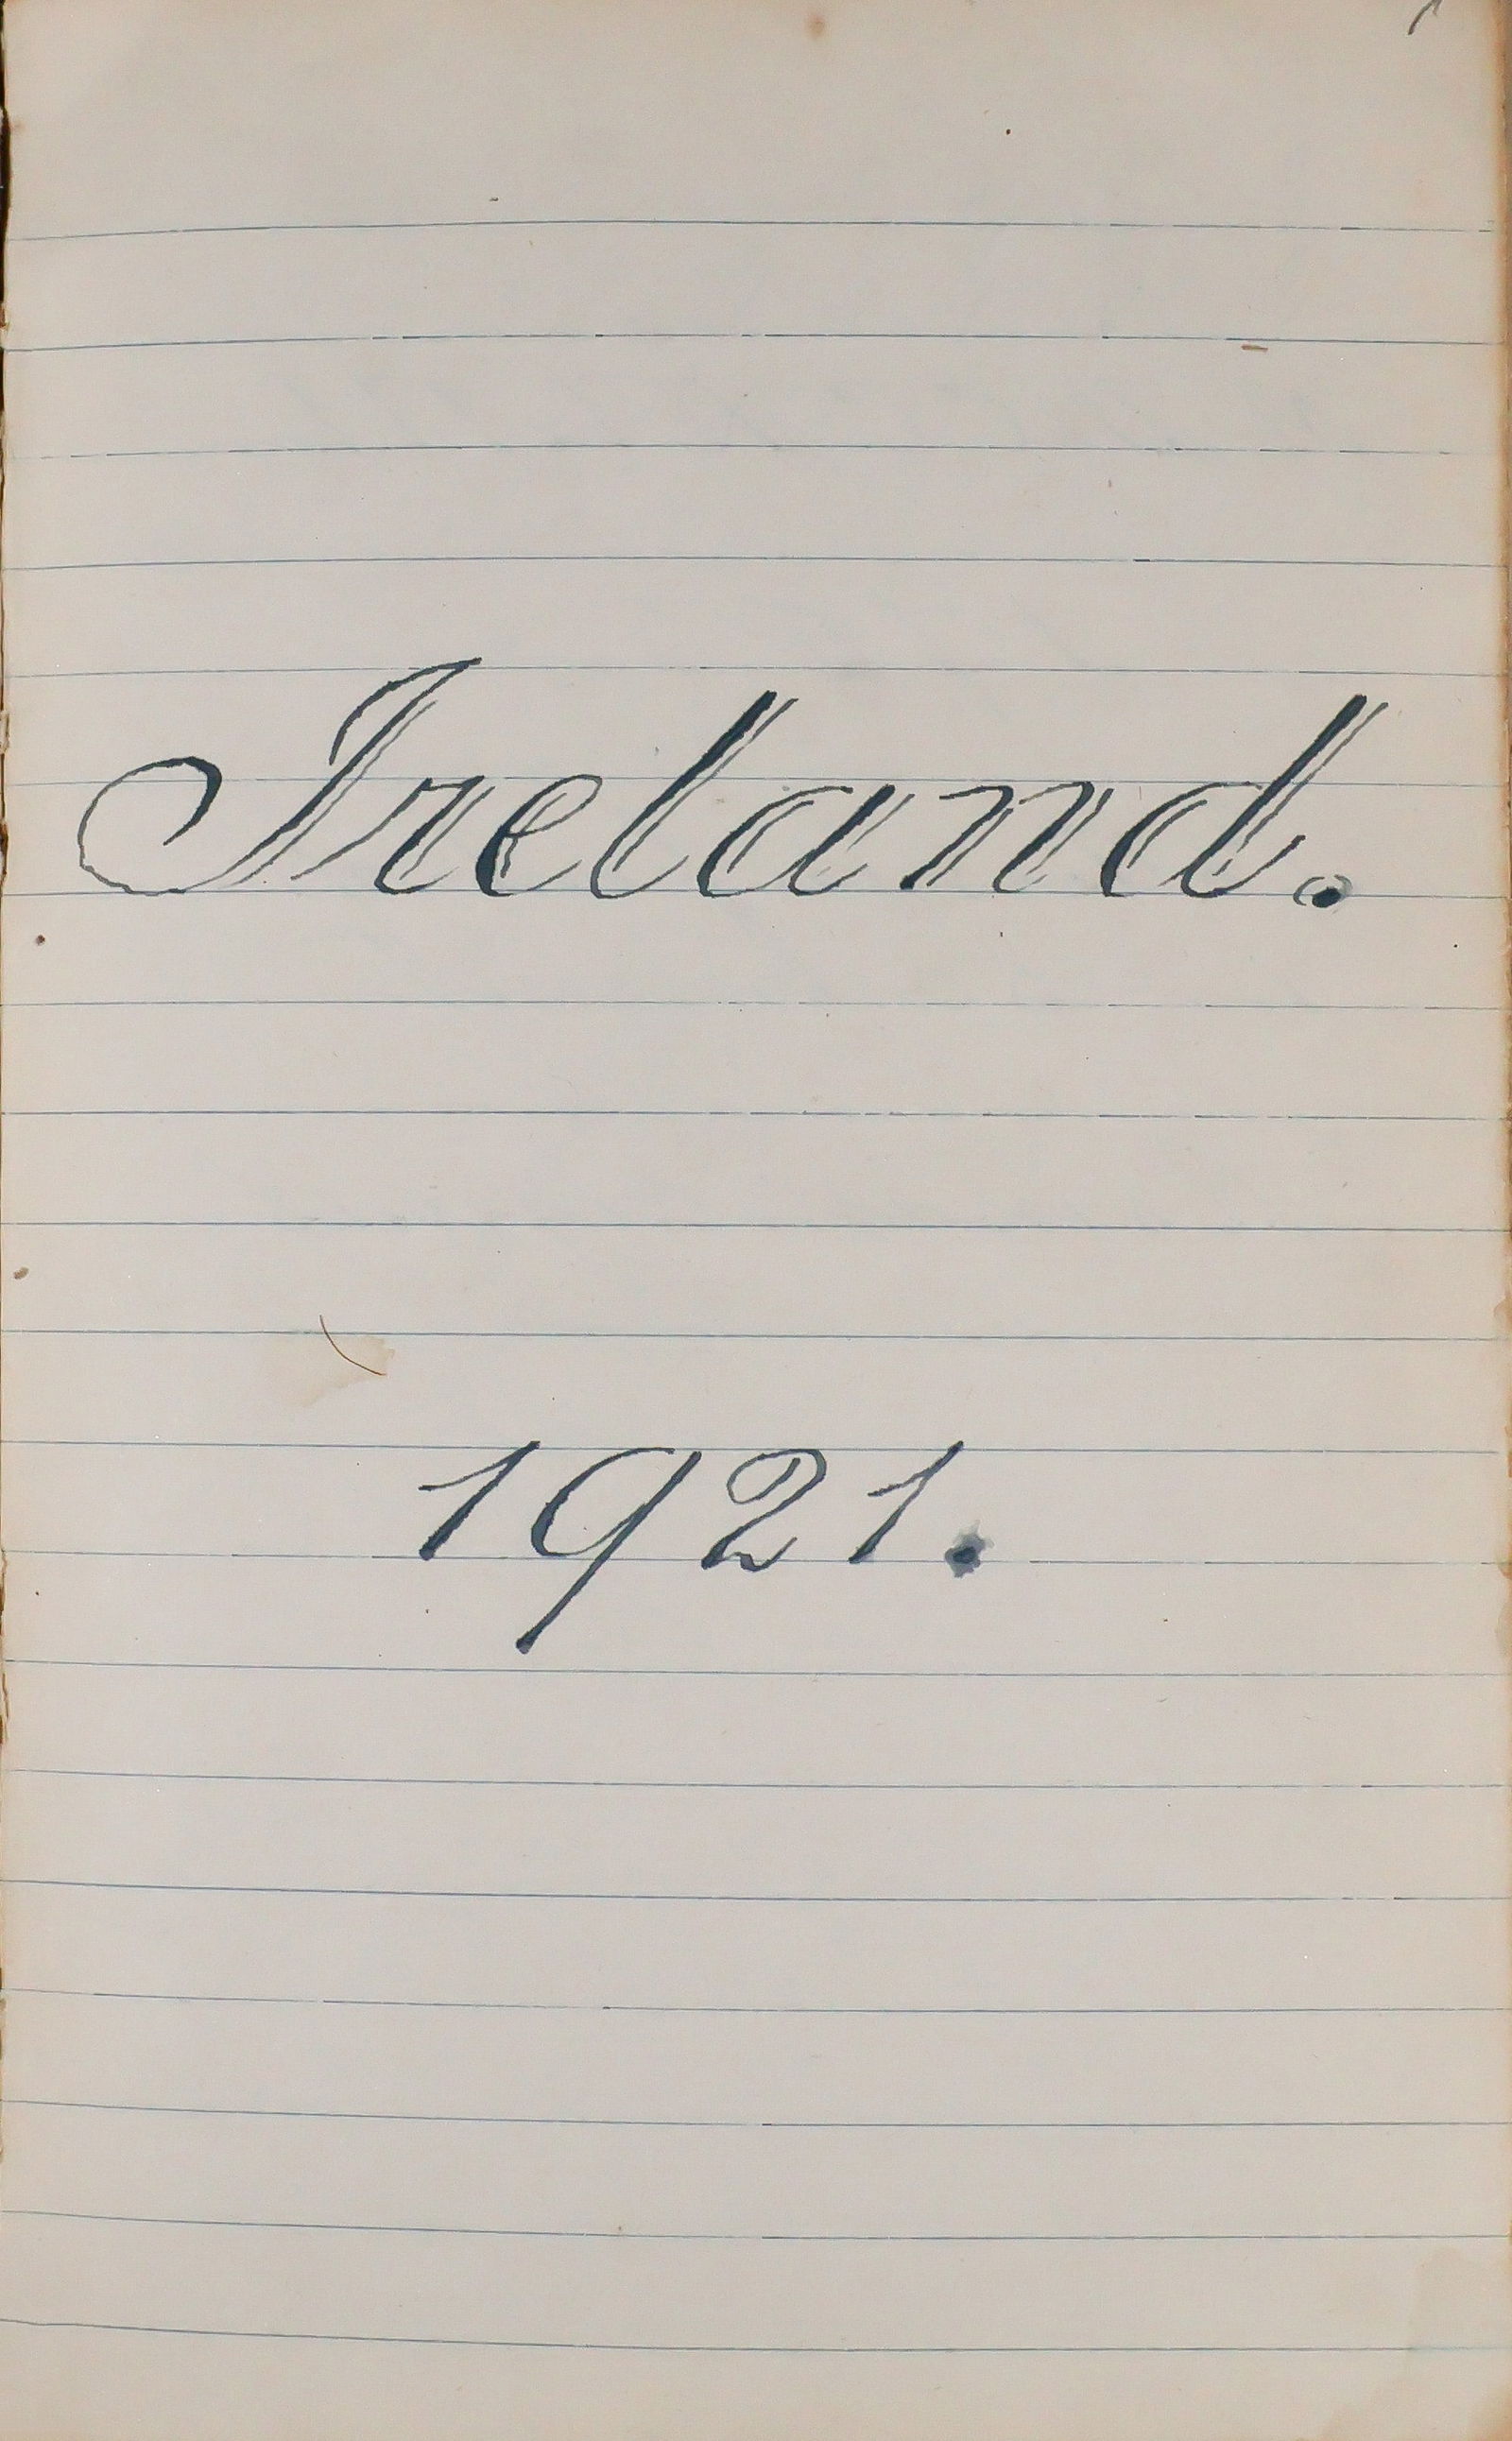 Ireland.
1921.